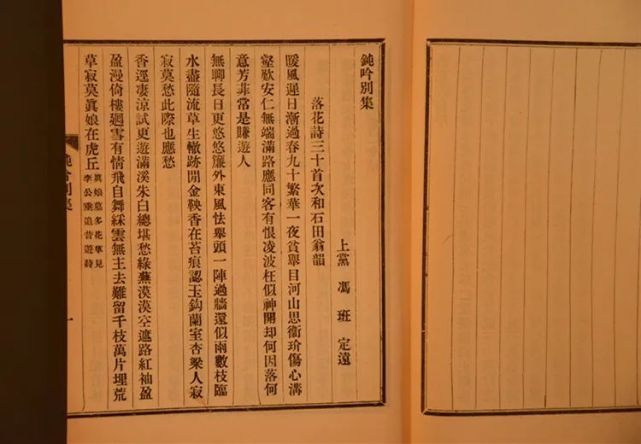 鈍吟別集
上黨 馮 班 定遠
落花詩三十首次和石田翁韻
暖風遲日漸過春九十繁華一夜貧舉目河山思衛玠傷心溝
壑歎安仁無端滿路應同客有恨凌波枉似神開却何因落何
意芳菲常是賺遊人
無聊長日更悠悠簾外東風怯舉頭一陣過牆還似雨數枝臨
水盡隨流草生轍跡閒金鞅香在苔痕認玉鈎蘭室杏梁人寂
寂莫愁此際也應愁
香逕淒涼試更遊滿溪朱白總堪愁綠蕪漠漠空遮路紅袖盈
盈漫倚樓迴雪有情飛自舞綵雲無主去難留千枝萬片埋荒
草寂莫眞娘在虎丘
眞娘墓多花草見
李公垂追昔遊詩
鈍吟別集
一